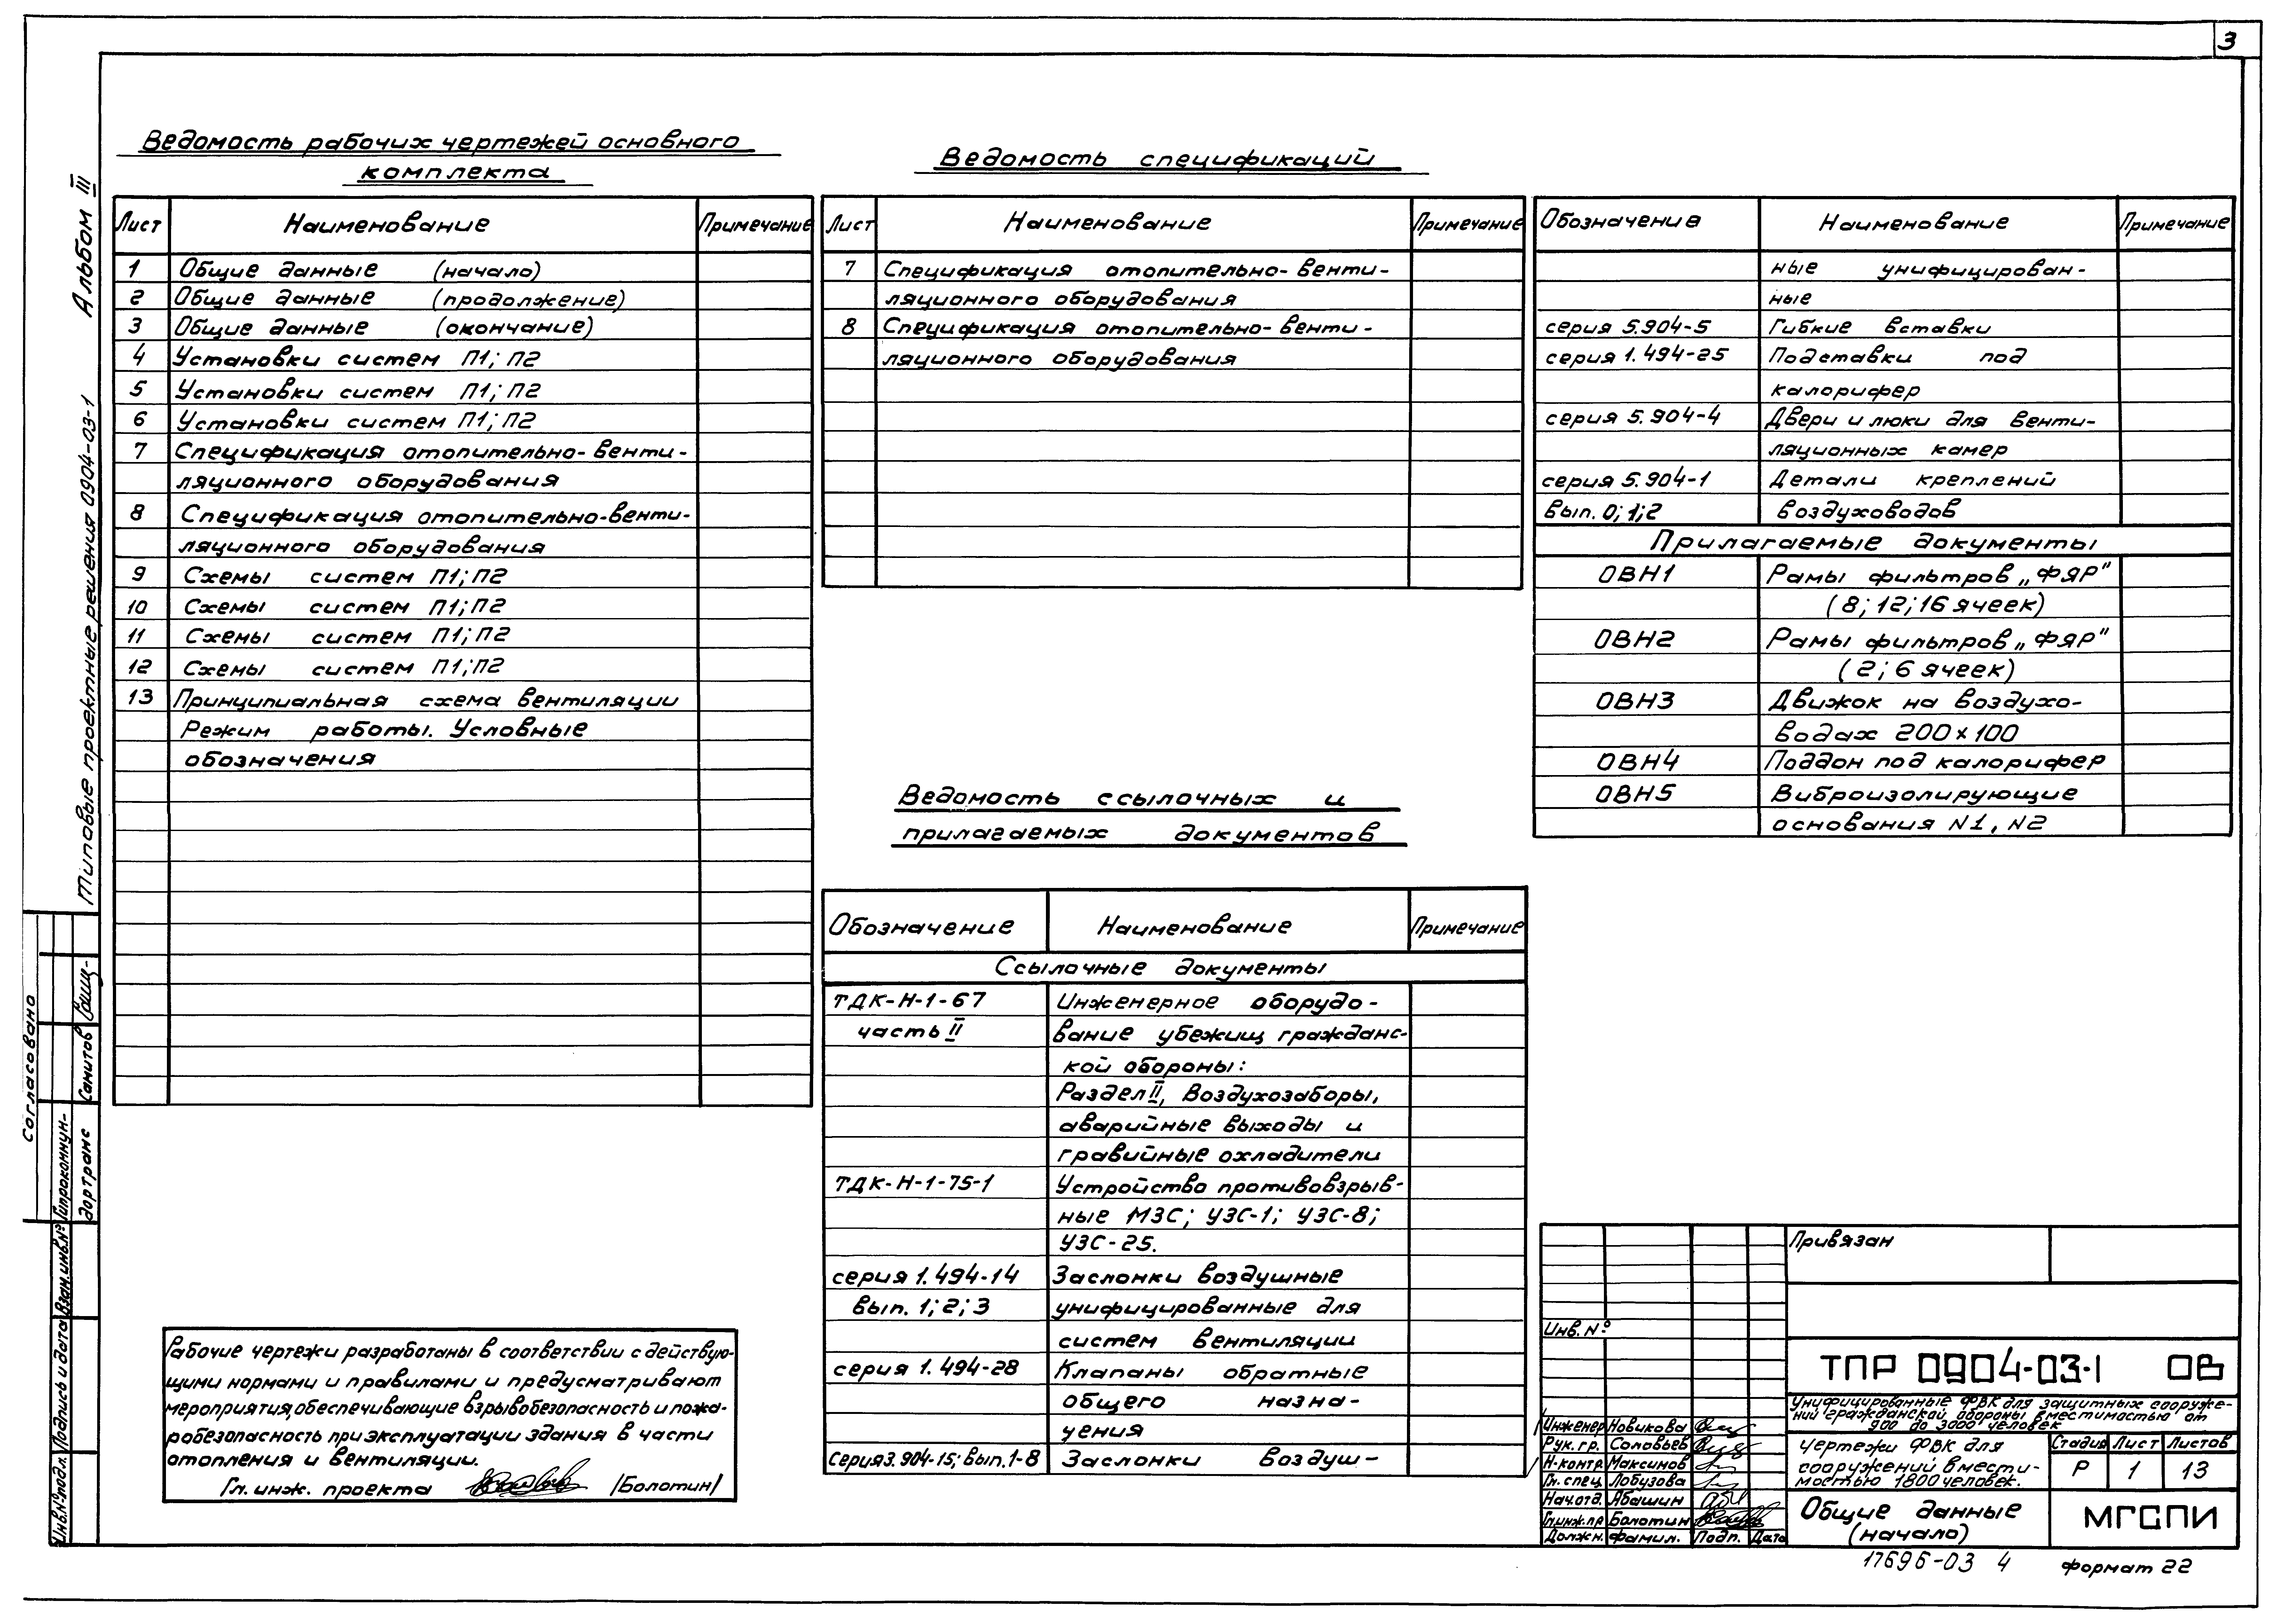 3
Альбом III
Типовые проектные решения 0904-03-1
Ведомость рабочих чертежей основного
комплекта
Лист Наименование Примечание
1 Общие данные (начало)
2 Общие данные (продолжение)
3 Общие данные (окончание)
4 Установки систем П1; П2
5 Установки систем П1; П2
6 Установки систем П1; П2
7 Спецификация отопительно-венти-
ляционного оборудования
8 Спецификация отопительно-венти-
ляционного оборудования
9 Схемы систем П1; П2
10 Схемы систем П1; П2
11 Схемы систем П1; П2
12 Схемы систем П1; П2
13 Принципиальная схема вентиляции
Режим работы. Условные
обозначения
Рабочие чертежи разработаны в соответствии с действую-
щими нормами и правилами и предусматривают
мероприятия, обеспечивающие взрывобезопасность и пожа-
робезопасность при эксплуатации здания в части
отопления и вентиляции.
Гл. инж. проекта /Болотин/
Ведомость спецификаций
Лист Наименование Примечание
7 Спецификация отопительно-венти-
ляционного оборудования
8 Спецификация отопительно-венти-
ляционного оборудования
Ведомость ссылочных и
прилагаемых документов
Обозначение Наименование Примечание
Ссылочные документы
ТДК-Н-1-67 Инженерное оборудо-
часть II вание убежищ гражданс-
кой обороны:
Раздел II, Воздухозаборы,
аварийные выходы и
гравийные охладители
ТДК-Н-1-75-1 Устройство противовзрыв-
ные МЗС; УЗС-1; УЗС-8;
УЗС-25.
серия 1.494-14 Заслонки воздушные
вып. 1; 2; 3 унифицированные для
систем вентиляции
серия 1.494-28 Клапаны обратные
общего назна-
чения
Серия 3.904-15; вып. 1-8 Заслонки воздуш-
Обозначения Наименование Примечание
ные унифицирован-
ные
серия 5.904-5 Гибкие вставки
серия 1.494-25 Подставки под
калорифер
серия 5.904-4 Двери и люки для венти-
ляционных камер
серия 5.904-1 Детали креплений
вып. 0; 1; 2 воздуховодов
Прилагаемые документы
ОВН1 Рамы фильтров „ФЯР"
(8; 12; 16 ячеек)
ОВН2 Рамы фильтров „ФЯР"
(2; 6 ячеек)
ОВН3 Движок на воздухо-
водах 200×100
ОВН4 Поддон под калорифер
ОВН5 Виброизолирующие
основания N1, N2
Согласовано
Гипрокоммун-
дортранс
Санитов
Инв.№подл.
Подпись и дата
Взам.инв.№
Привязан
Инв. №
ТПР 0904-03-1 ОВ
Унифицированные ФВК для защитных сооруже-
ний гражданской обороны вместимостью от
900 до 3000 человек
Инженер Новикова
Рук. гр. Соловьев
Н.контр. Максимов
Гл. спец. Лобузова
Нач.отд. Абашин
Гл.инж.пр Болотин
Должн. Фамил. Подп. Дата
Чертежи ФВК для
сооружений вмести-
мостью 1800 человек.
Стадия Лист Листов
Р 1 13
Общие данные
(начало)
МГСПИ
17696-03 4
Формат 22